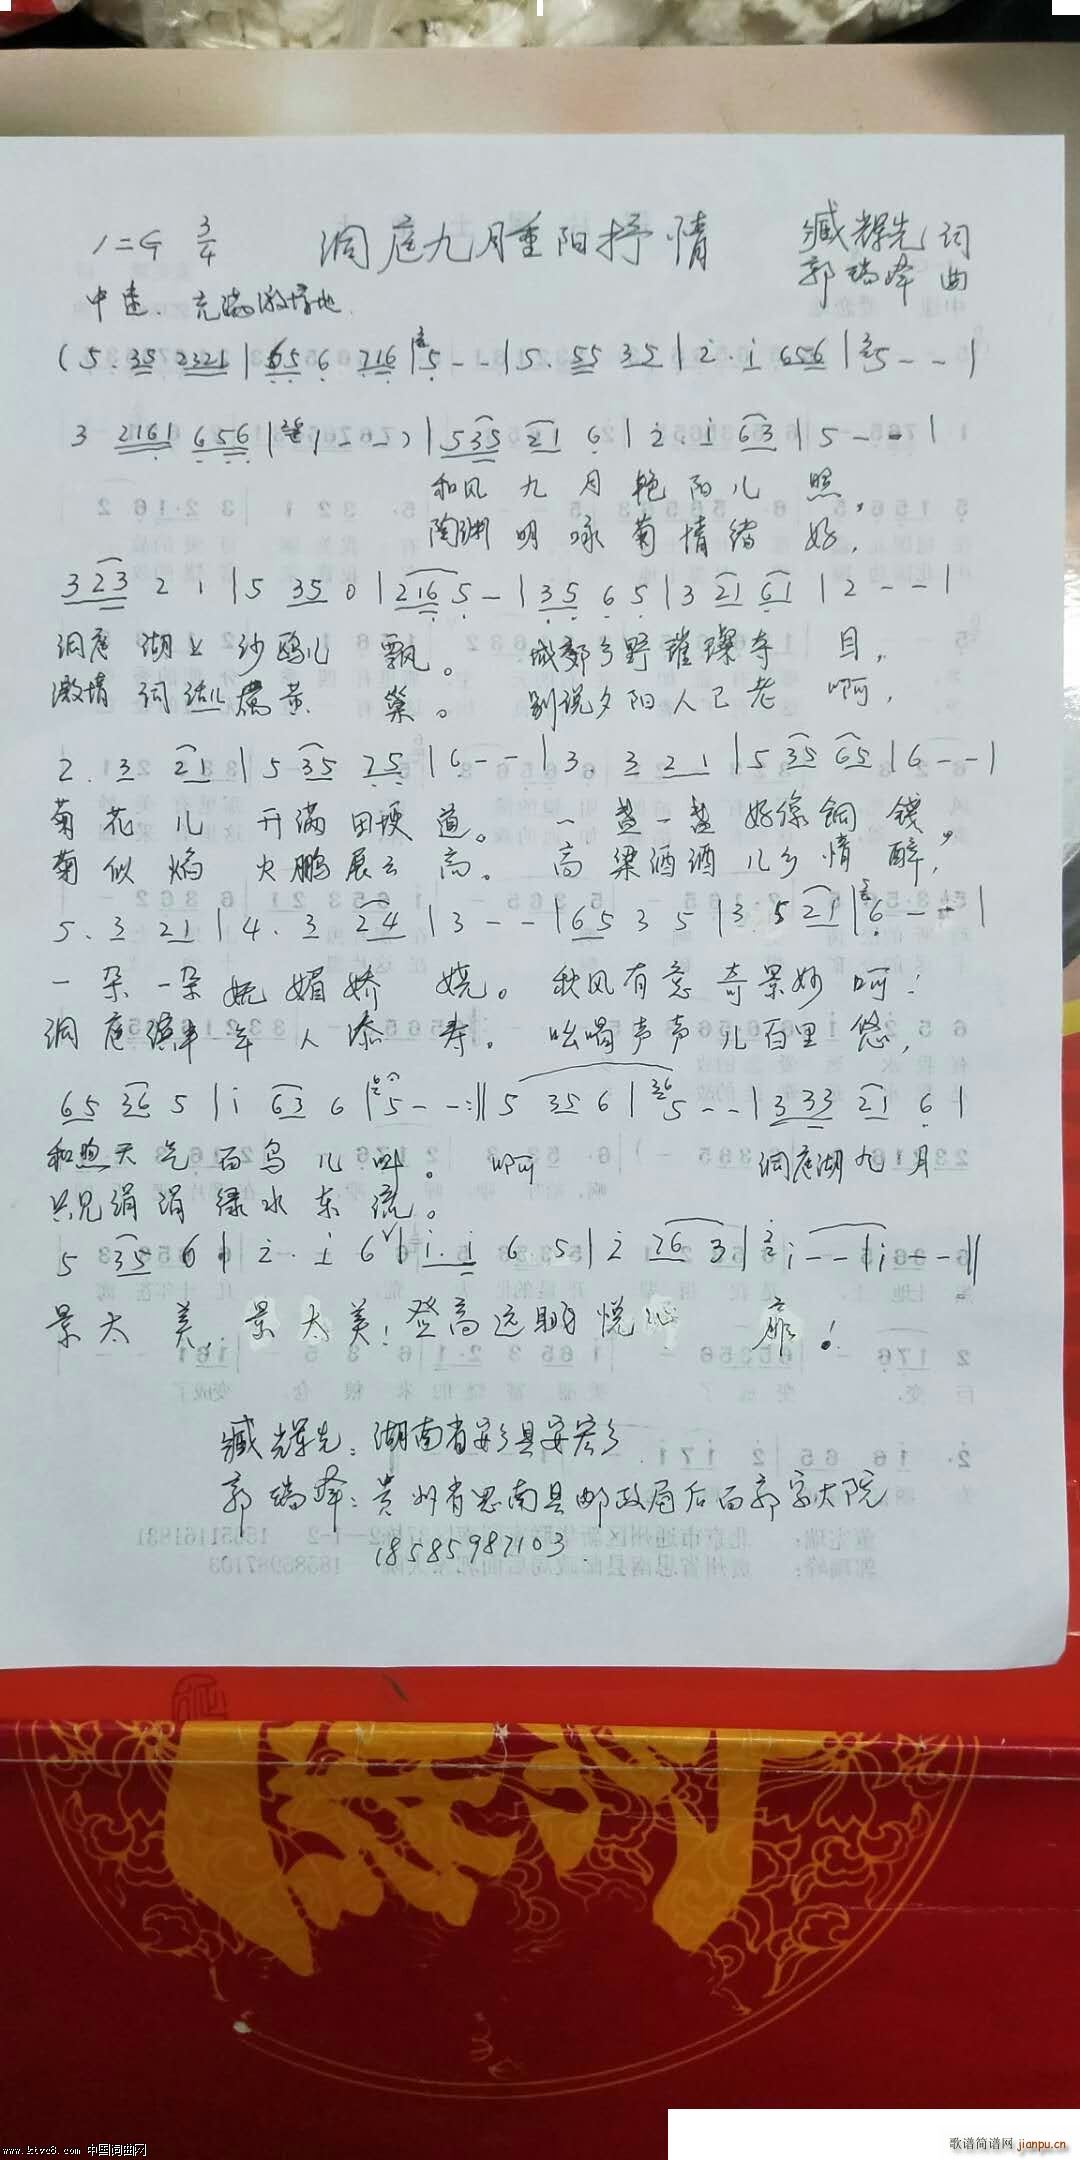 1=G 3/4 洞庭九月重阳抒情 臧辉先 词
郭瑞峰 曲
中速. 充满激情地.
(5. 35 2321 | 65 6 716 | 5 - - | 5. 55 35 | 2. 1 656 | 5 - - |
3 2161 656 | 1 - - ) | 535 21 6 | 2. 1 63 | 5 - - |
和风 九 月 艳 阳 儿 照,
陶渊 明 咏 菊 情 绪 好,
323 2 1 | 5 35 0 | 216 5 - | 35 6 5 | 3 21 61 | 2 - - |
洞庭 湖上 沙鸥儿 飘。 城郊乡野璀璨夺 目,
激情 词 黄 巢。 别说夕阳人已老 啊,
2. 3 21 | 5 35 75 | 6 - - | 3. 3 21 | 5 35 65 | 6 - - |
菊 花 儿 开满田埂 道。 一 盏一盏 好像铜 钱,
菊 似 焰 火鹏展云 高。 高 粱酒酒 儿乡情 醉,
5. 3 21 | 4. 3 24 | 3 - - | 65 3 5 | 3. 5 21 | 6 - - |
一 朵 一朵 妩 媚娇 娆。 秋风有意 奇景妙 啊!
洞 庭 年 人 添 寿。 吆喝声声 儿百里 悠,
65 36 5 | i 63 6 | 5 - - :|| 5 35 6 | 5 - - | 333 21 6 |
和煦天气 百鸟 儿 叫。 啊 洞庭湖九 月
只见涓 涓 绿水 东 流。
5 35 6 | 2. i 6 | i. i 6. 5 | 2 76 3 | i - - | i - - ||
景太 美, 景 太美! 登高远眺 悦心 廊!
臧辉先: 湖南省安乡县安宏乡
郭瑞峰: 贵州省思南县邮政局后面郭家大院
18585987103.
www.ktvc8.com 中国词曲网
歌谱简谱网 jianpu.cn